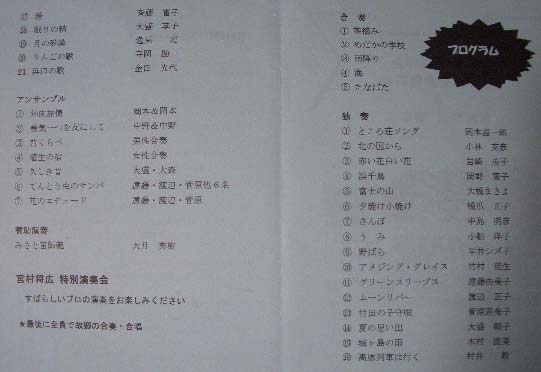 プログラム
合奏
① 茶摘み
② めだかの学校
③ 雨降り
④ 海
⑤ たなばた
独奏
① ところ荘ソング
② 北の国から 小林
③ 赤い花白い花 岩崎 英子
④ 浜千鳥 岡野
⑤ 富士の山 大橋まきよ
⑥ 夕焼け小焼け 橋爪 正子
⑦ さんぽ 中島
⑧ うみ 小船 洋子
⑨ 野ばら 平井シズ子
⑩ アメイジング・グレイス 竹村
⑪ グリーンスリーブス 遠藤由美子
⑫ ムーンリバー 渡辺 正子
⑬ 竹田の子守唄 菅原恵美子
⑭ 夏の思い出 大盛 順子
⑮ 城ヶ島の雨 木村 直美
⑯ 高原列車は行く 村井 敏
⑰ 港 斉藤 富子
⑱ 眠りの精 大盛 享子
⑲ 月の沙漠
⑳ りんごの歌 寺岡 勘
21 浜辺の歌 金田 光代
アンサンブル
① 知床旅情 岡本&岡本
② 勇気一つを友にして 中野&中野
③ 背くらべ 男性合奏
④ 埴生の宿 女性合奏
⑤ 久しき昔 大盛・大森
⑥ てんとう虫のサンバ 遠藤・渡辺・菅原他6名
⑦ 花のエチュード 遠藤・渡辺・菅原
賛助演奏
みさと笛師範 大月 秀樹
宮村将広 特別演奏会
すばらしいプロの演奏をお楽しみください
★最後に全員で故郷の合奏・合唱